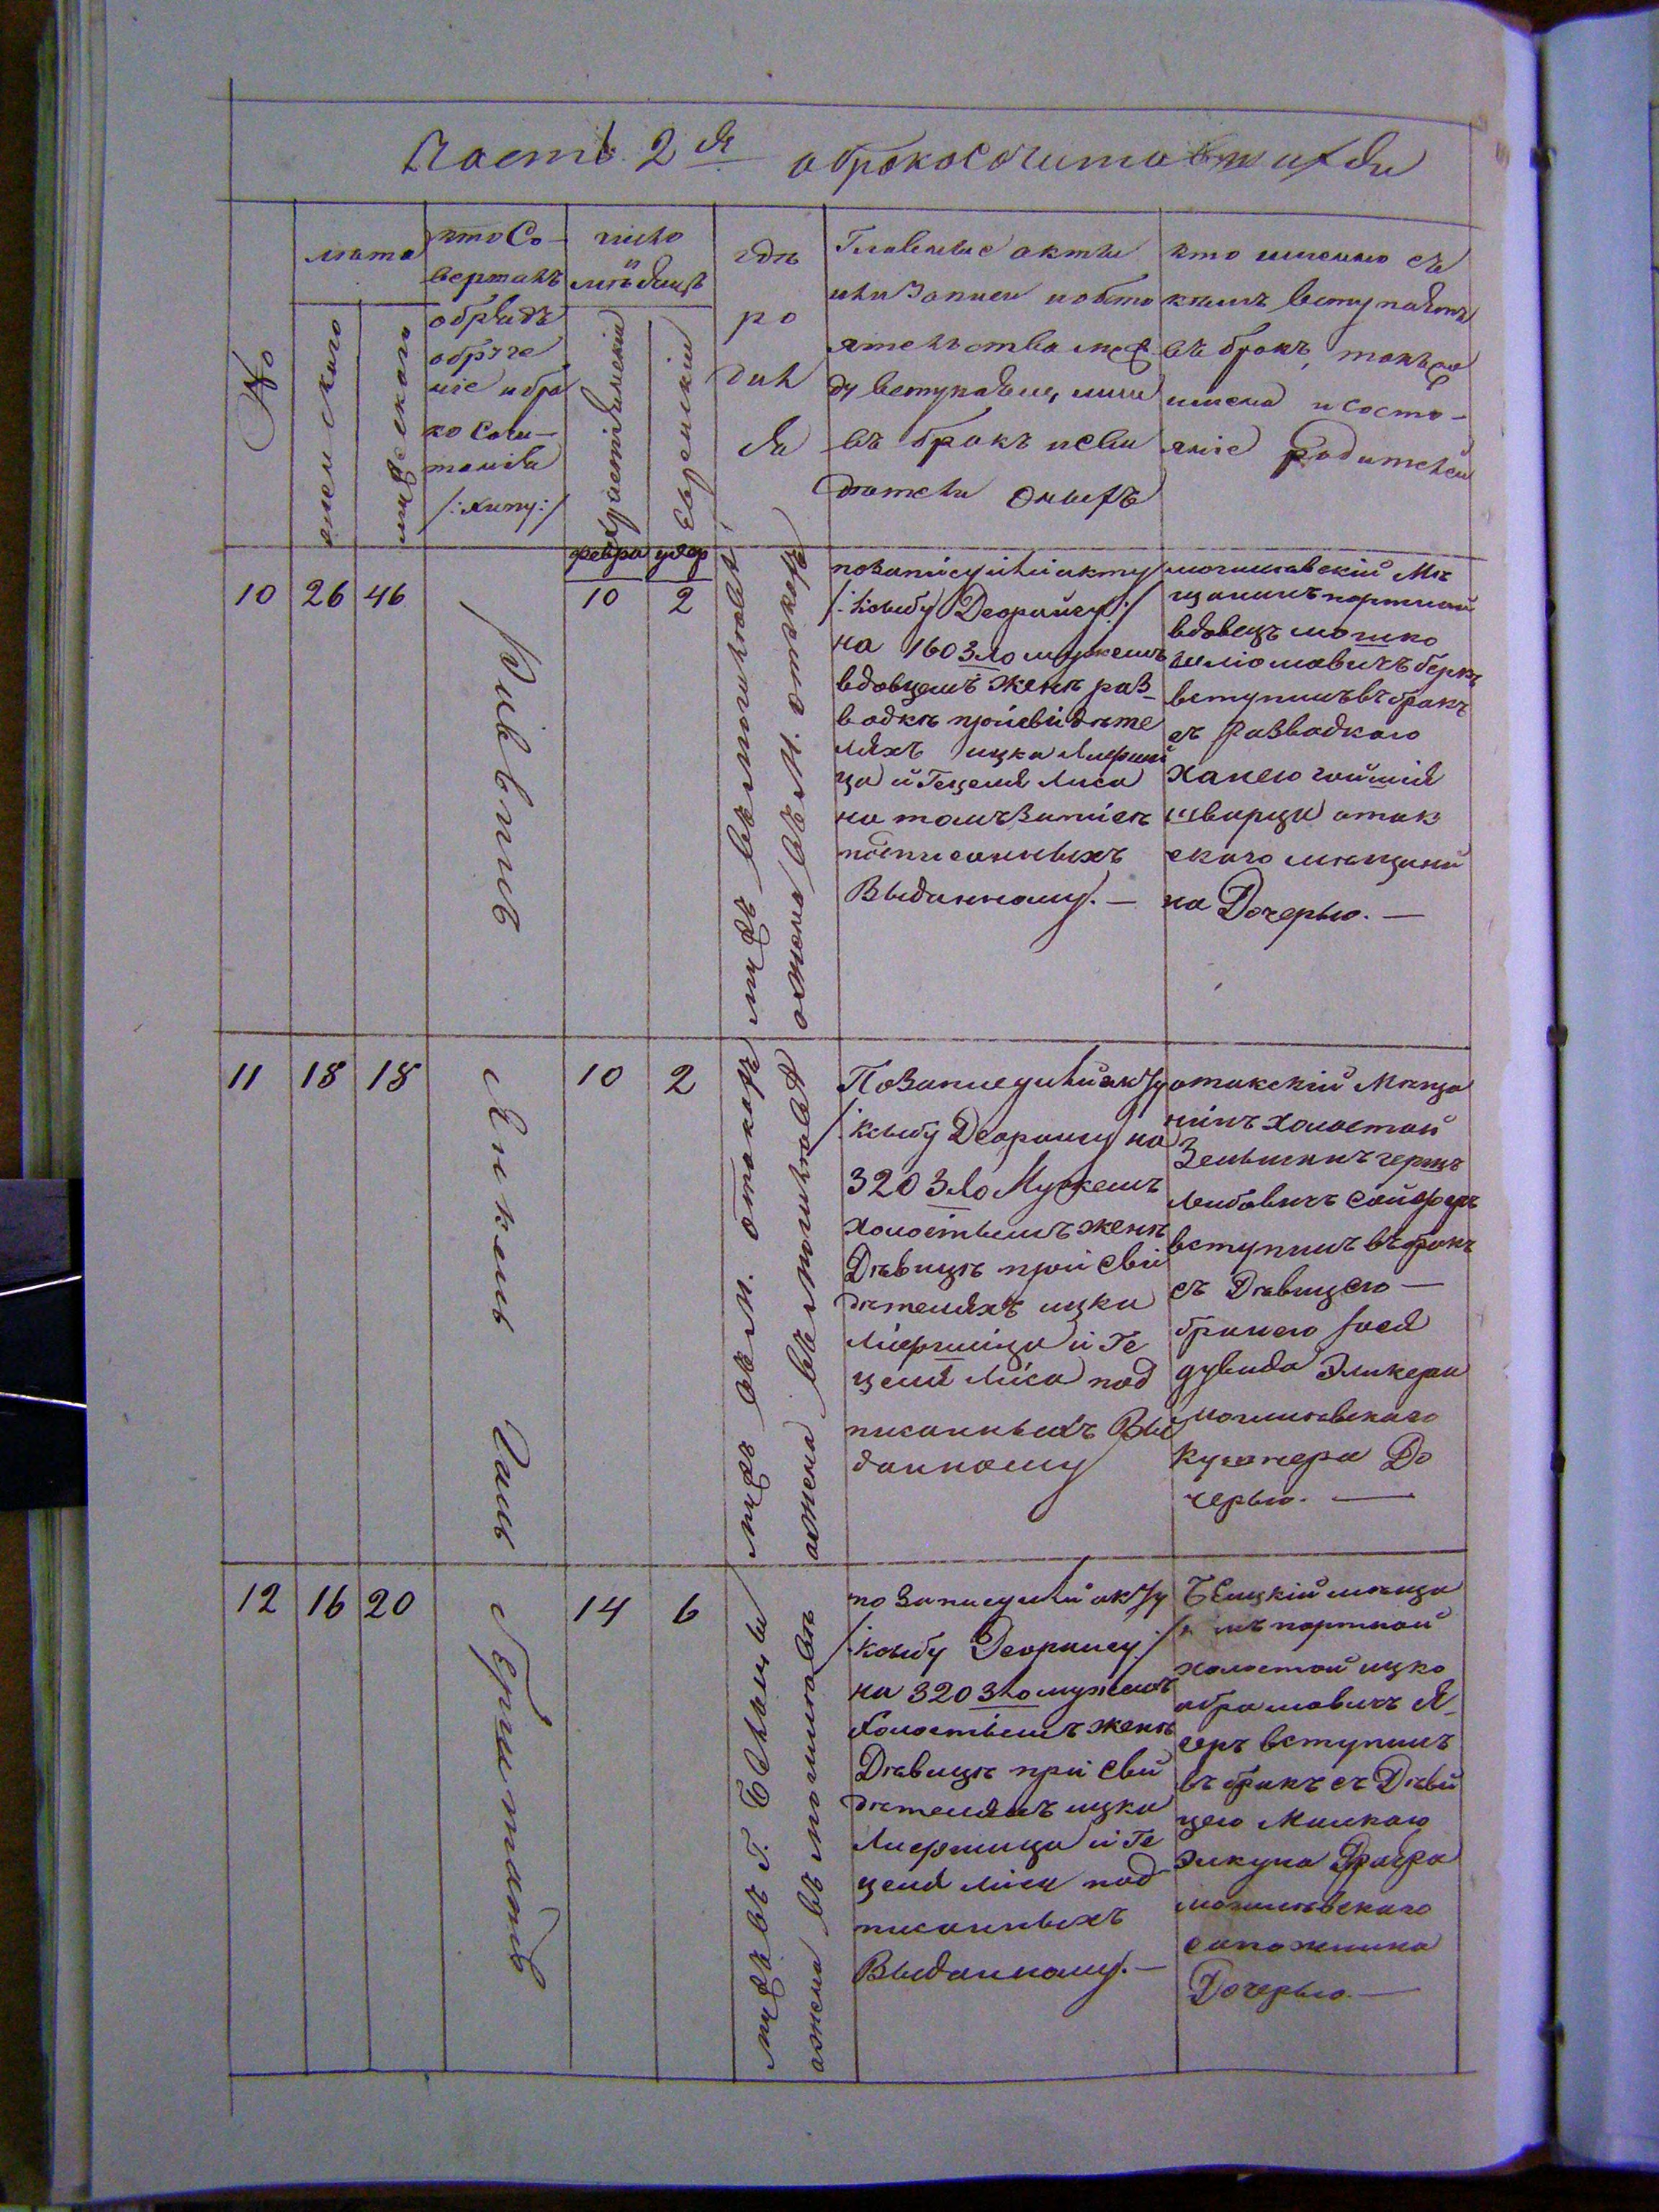 Часть 2я о бракосочитавшихся
№
лѣта
женскаго
мужескаго
кто Со-
вершалъ
обрядъ
обруче
ніе и бра
ко сочи-
танія
/:хипу:/
число
и
мѣсяцъ
Христіянскій
Еврейскій
гдѣ
ро
дил
ся
Главные акты
или Записи и обсто
ятельства меж
ду вступающими
въ бракъ и сви
дѣтели оныхъ
кто именно съ
кѣмъ вступаетъ
въ бракъ, также
имена и состо-
яніе родителей
10
26
46
февра
10
удор
2
мужъ въ могилевѣ
а жена въ м. отакахъ
по записи или акту
/:ксыбу Деорайсу:/
на 160 Зло мужемъ
вдовцемъ женѣ раз-
водкѣ при свидѣте
ляхъ ицка Лифшица
ца и Гецеля Лиса
на томъ записѣ
подписанныхъ
Выданному. —
могилевскій Мѣ
щанинъ портной
вдовецъ мошко
шліомовичъ берк
вступилъ въ бракъ
съ Разводкаю
ханею
шварца отак
скаго мѣщани
на Дочерью. —
11
18
18
Янкель
10
2
мужъ въ м. отакахъ
а жена въ могилевѣ
По записи или акту
/:ксыбу Деорайсу на
320 Зло Мужемъ
холостымъ женѣ
Дѣвицѣ при Сви
дѣтеляхъ ицка
Лифшица и Ге
целя Лиса под
писанныхъ Вы
данному
отакскій Мѣща
нинъ холостой
Зельманъ герцъ
Лейбовичъ сойфер
вступилъ въ бракъ
съ Дѣвицею —
бранею
дувида
могилевскаго
Дo
черью. —
12
16
20
14
6
мужъ въ Г. Бѣльцы
а жена въ могилевѣ
по записи или акту
/:ксыбу Деорайсу:/
на 320 Зло мужемъ
холостымъ женѣ
Дѣвицѣ при Сви
дѣтеляхъ ицка
Лифшица и Ге
целя Лиса под
писанныхъ
Выданному. —
Бѣлцкій мѣща
нинъ портной
холостой ицко
абрамовичъ Я-
геръ вступилъ
въ бракъ съ Дѣви
цею Малкаю
могилевскаго
сапожника
Дочерью. —